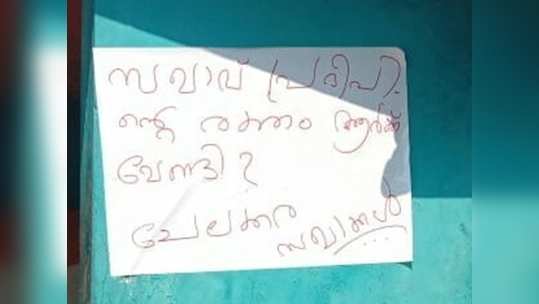 സഖാവ് പ്രദീപി.
ന്റെ രക്തം ആർക്ക്
വേണ്ടി ?
ചേലക്കര
സഖാക്കൾ